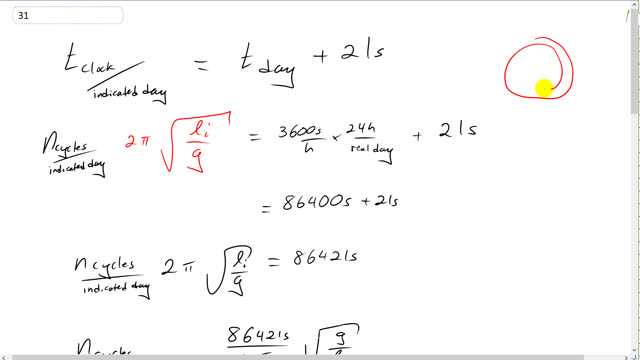 31
t clock/indicated day = t day + 21s
n cycles/indicated day 2π √(li/g) = 3600s/h × 24h/real day + 21s
= 86400s + 21s
n cycles/indicated day 2π √(li/g) = 86421s
n cycles 86421s √g